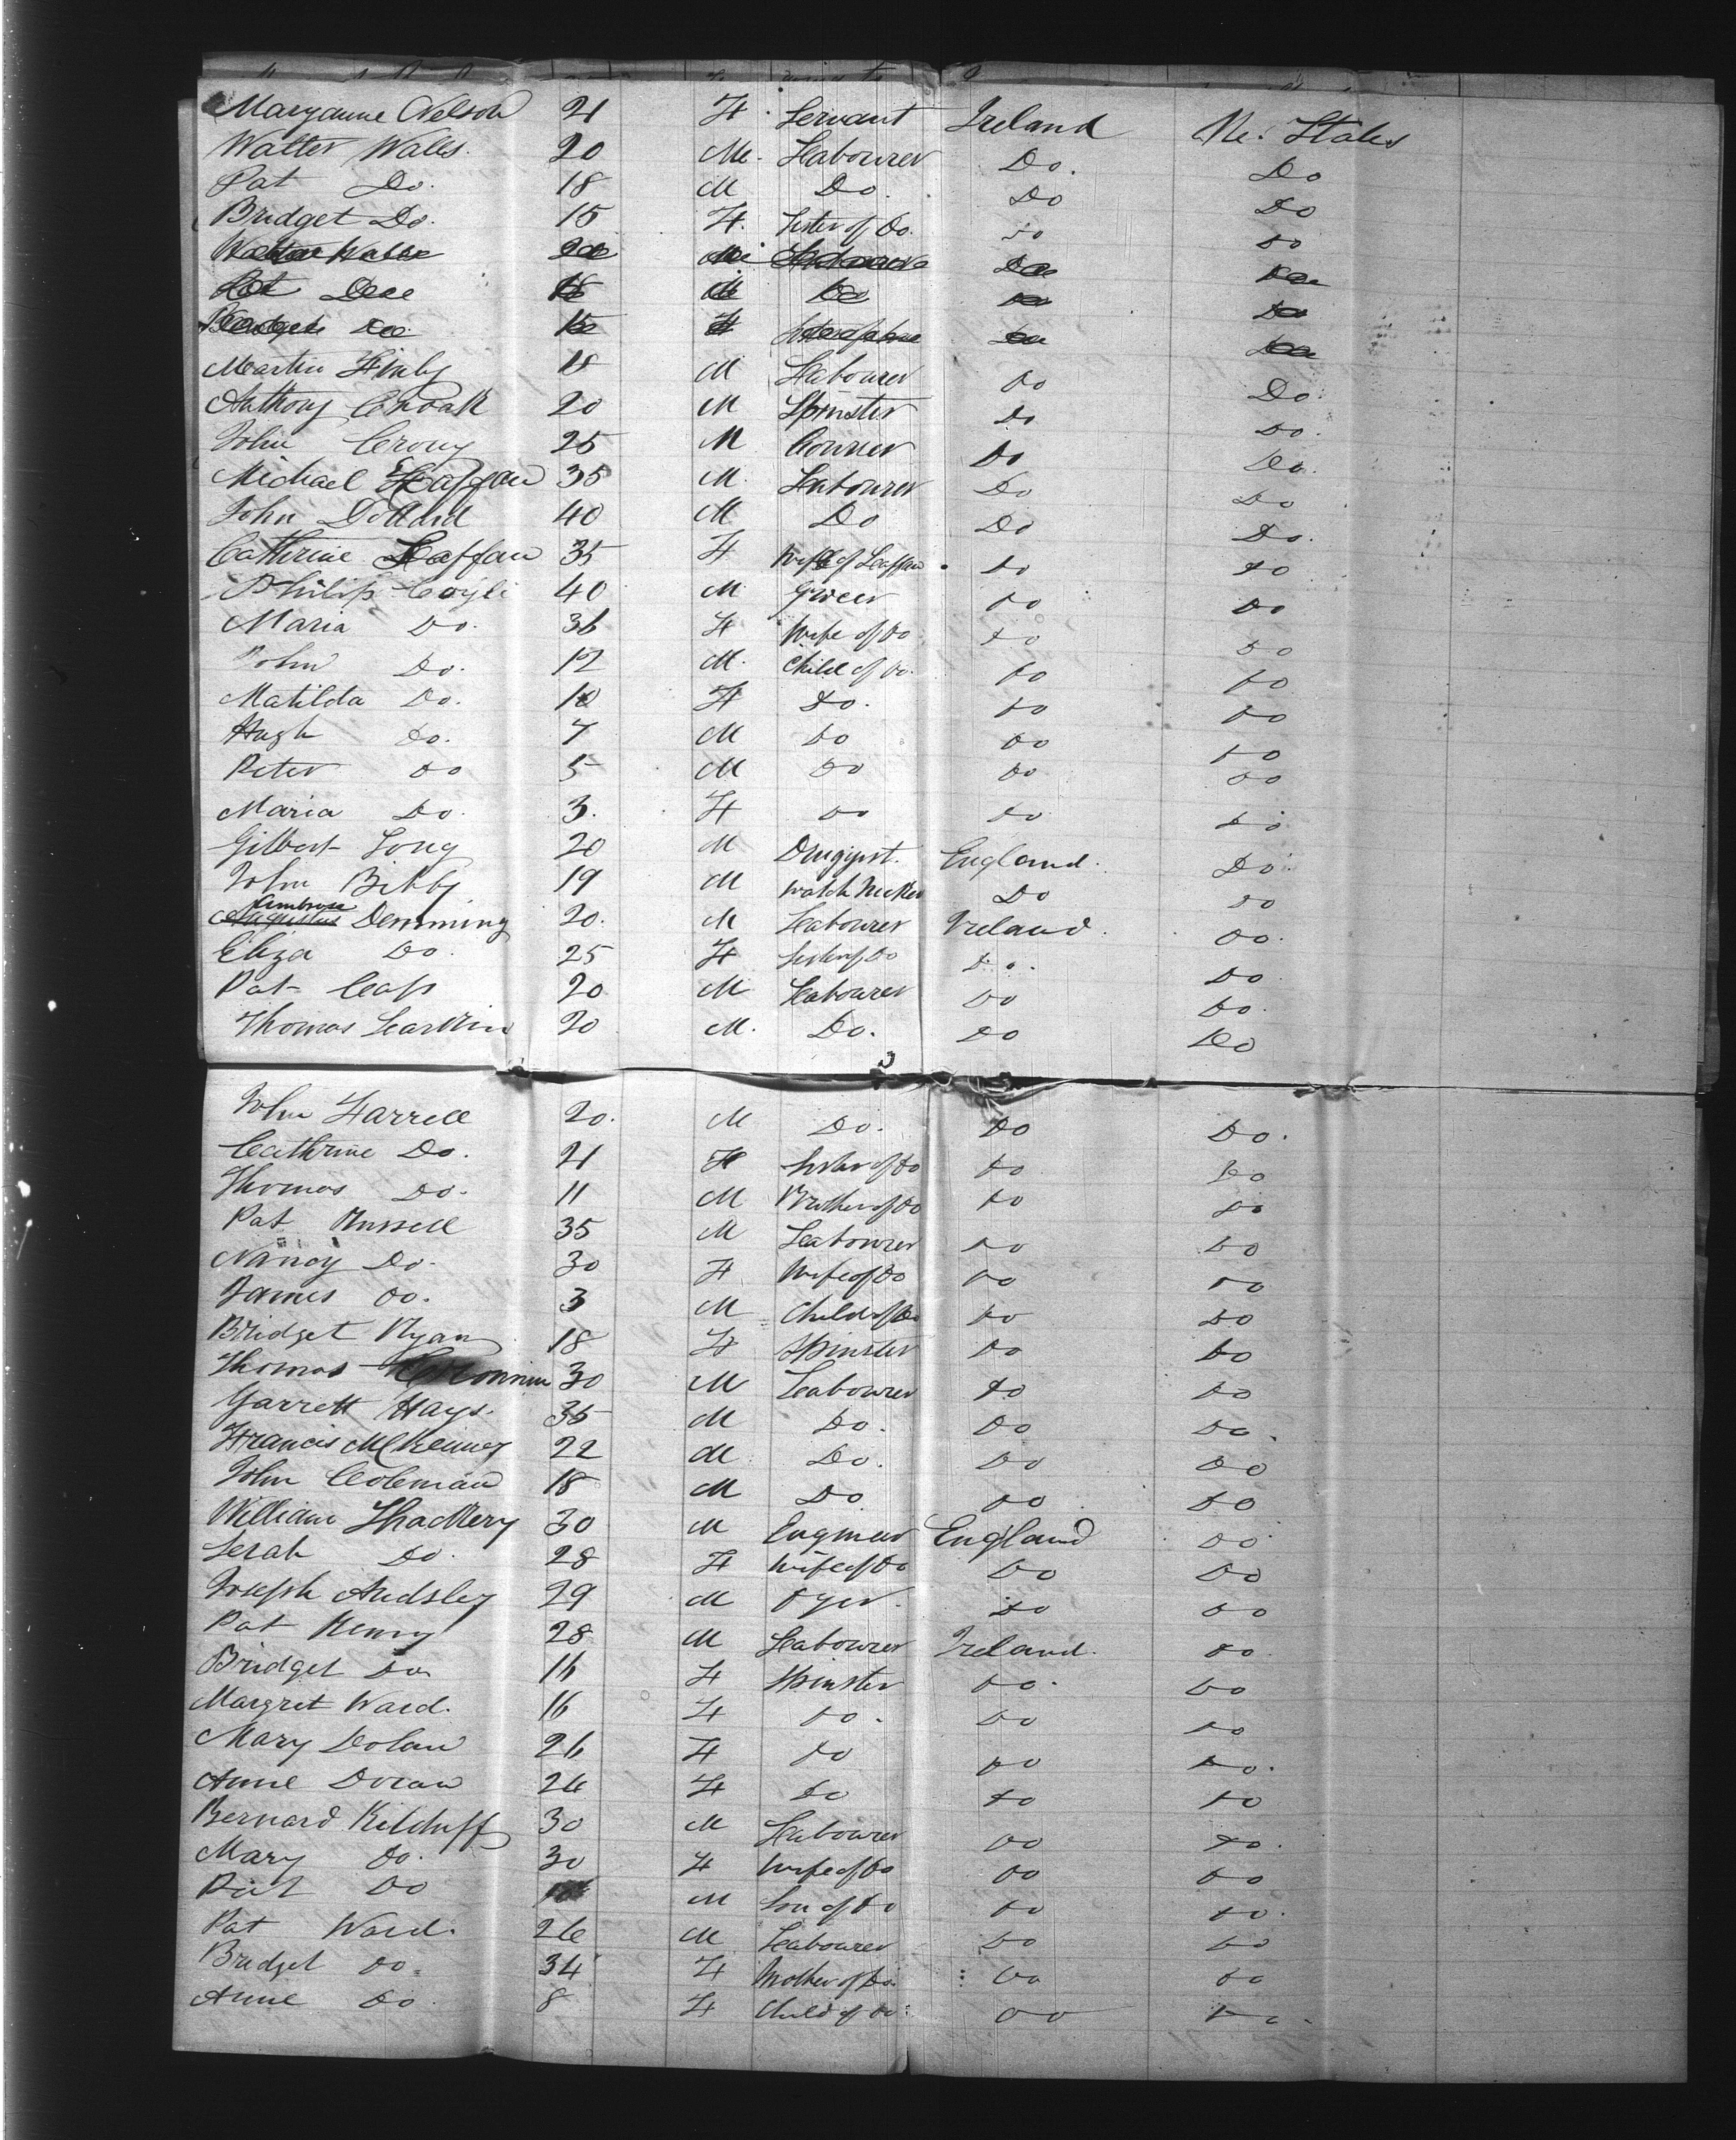 Maryanne Nelson 21 F Servant Ireland Un. States
Walter Walls. 20 M. Labourer Do. Do
Pat Do. 18 M Do. Do Do
Bridget Do. 15 F. Sister of Do. Do Do
Walter Walls 20 M Labourer Do Do
Pat Do 18 M Do Do Do
Bridget Do 15 F Sister of Do Do Do
Martin 18 M Labourer Do Do
Anthony Cusak 20 M Spinster Do Do.
John Crony 25 M Conner Do Do.
Michael Laffan 35 M. Labourer Do Do
John Dollard 40 M Do Do Do.
Cathrine Laffan 35 F Wife of Laffan Do Do
Philip Coyle 40 M. Grocer Do Do
Maria Do. 36 F Wife of Do Do Do
John Do. 12 M. Child of Do. Do Do
Matilda Do. 10 F Do. Do Do
Hugh Do. 7 M Do Do Do
Peter Do 5 M Do Do Do
Maria Do. 3. F Do Do Do
Gilbert Long 20 M Drugist. England. Do
John Bibby 19 M Watch Maker Do Do
Ambrose
Augustus Demming 20. M Labourer Ireland. Do.
Eliza Do. 25 F Sister of Do Do. Do
Pat 20 M Labourer Do Do.
Thomas Larkin 20 M. Do. Do Do
John Farrell 20. M Do. Do Do.
Cathrine Do. 21 F Sister of Do Do Do
Thomas Do. 11 M Brother of Do Do Do
Pat Russell 35 M Labourer Do Do
Nancy Do. 30 F Wife of Do Do Do
James Do. 3 M Child of Do Do Do
Bridget Ryan 18 F Spinster Do Do
Thomas 30 M Labourer Do Do
Garrett Hays. 35 M Do. Do Do.
Francis McKenney 22 M Do. Do Do
John Coleman 18 M Do Do Do
William Thackery 30 M Engineer England Do
Serah Do. 28 F Wife of Do Do Do
Joseph Audsley 29 M Dyer. Do Do
Pat Henry 28 M Labourer Ireland. Do
Bridget Do 16 F Spinster Do. Do
Margret Ward. 16 F Do. Do Do
Mary Dolan 26 F Do Do Do.
Anne Doran 24 F Do Do Do
Bernard Kilduff 30 M Labourer Do Do.
Mary Do. 30 F Wife of Do Do Do
Pat Do M Son of Do Do Do.
Pat Ward. 26 M Labourer Do Do
Bridget Do. 34 F Mother of Do. Do Do
Anne Do. 8 F Child of Do. Do Do.